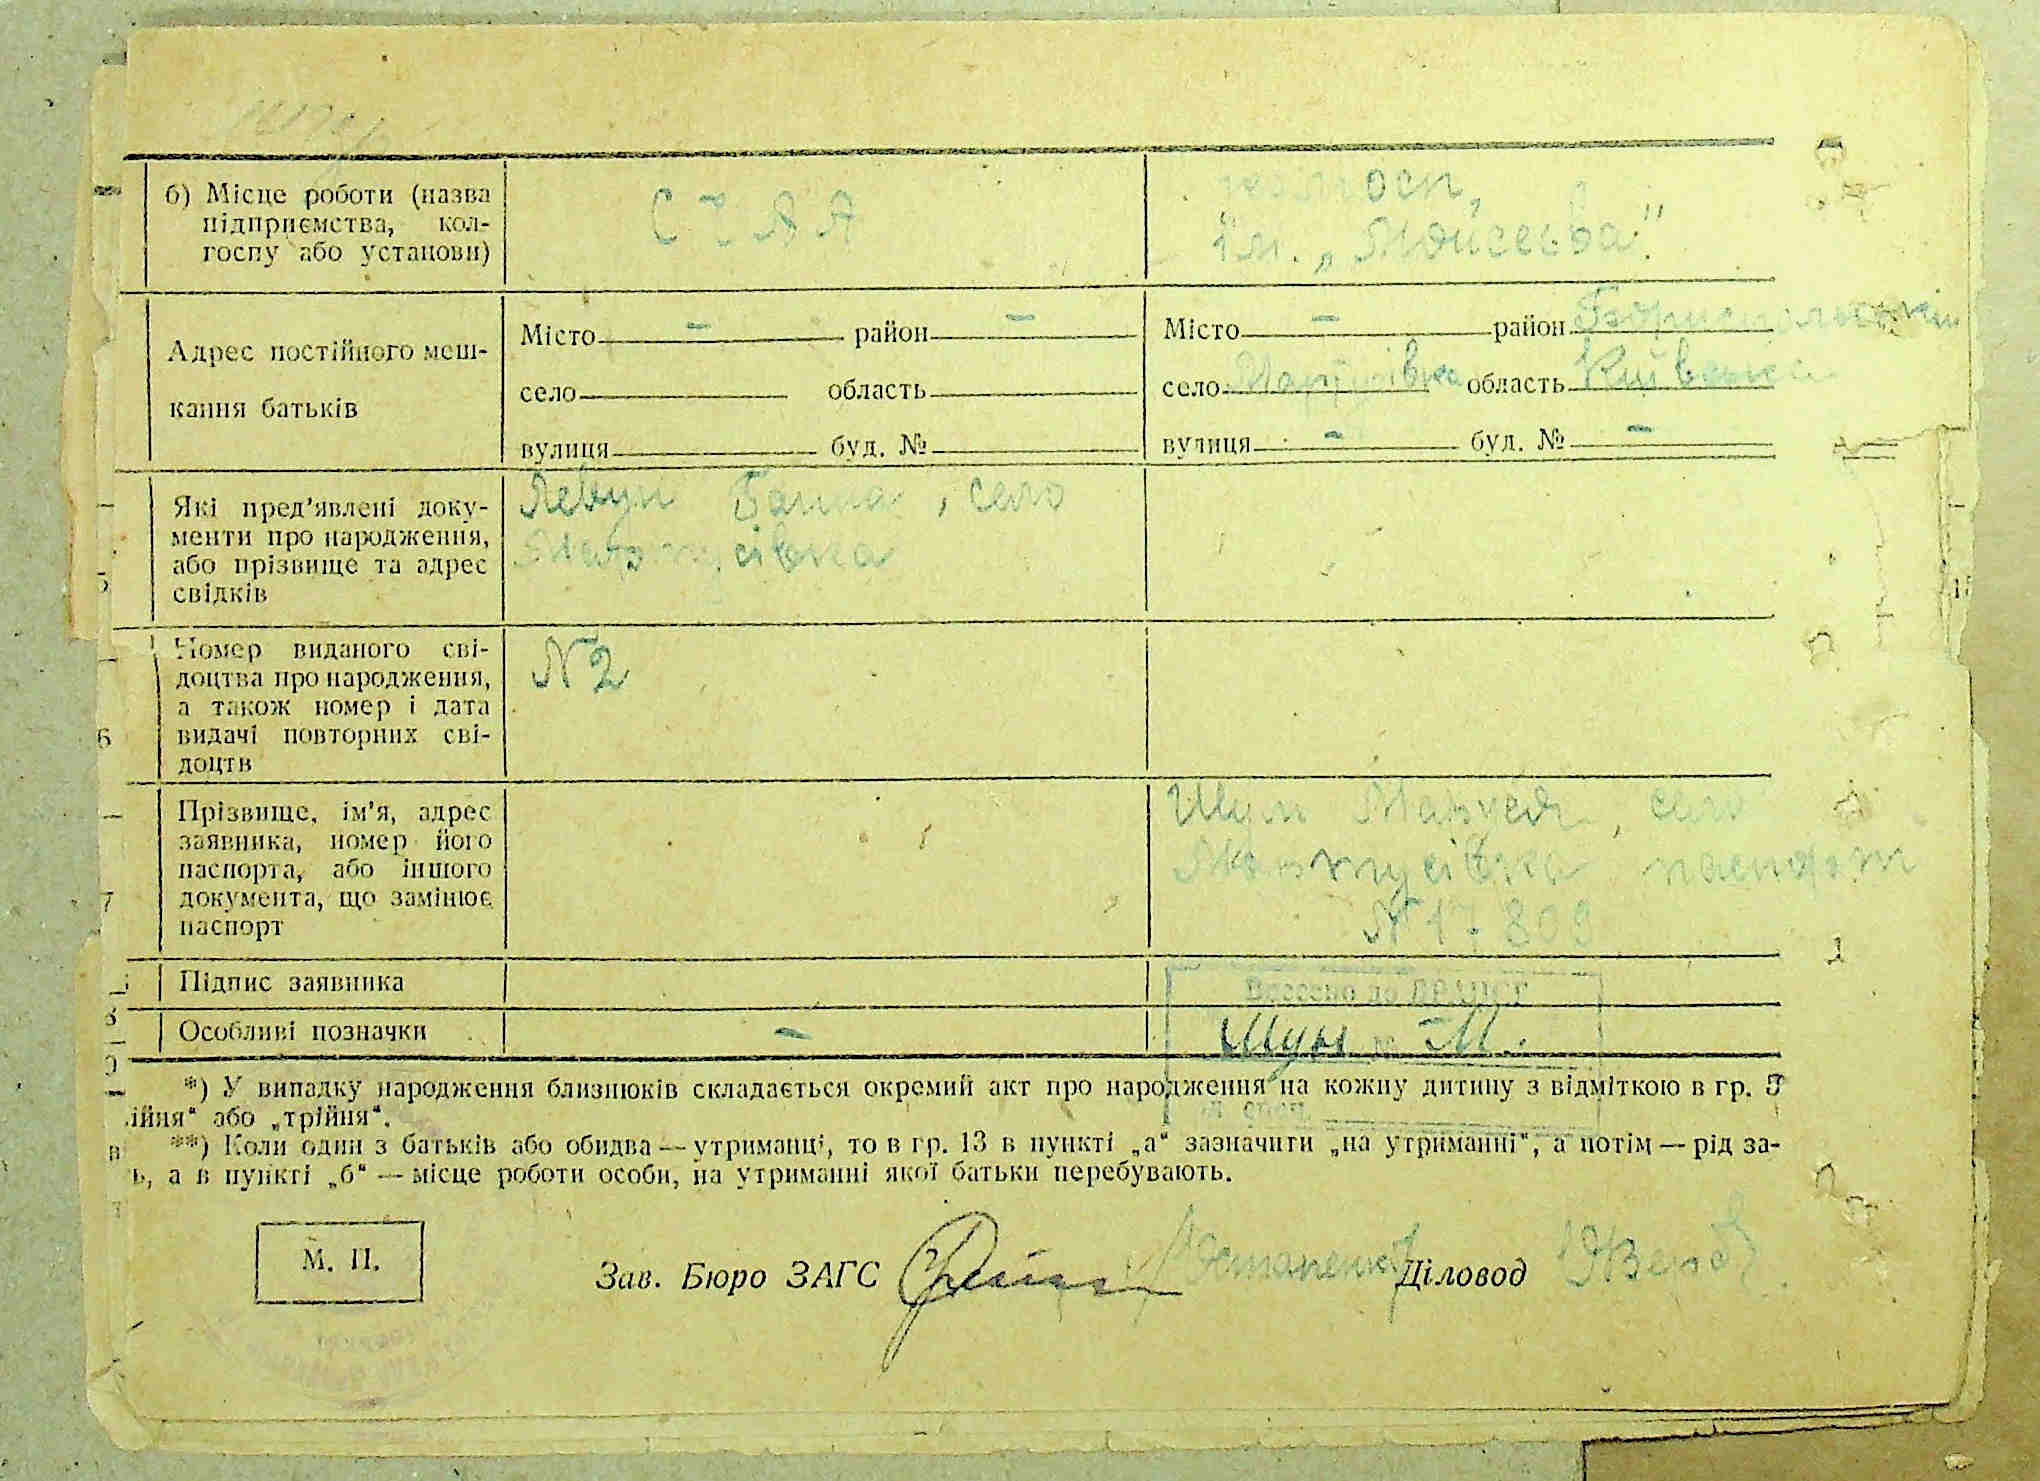 б) Місце роботи (назва
підприємства, кол-
госпу або установи)
колгосп,
ім. „Мойсеєва"
Адрес постійного меш-
кання батьків
Місто — район —
село область
вулиця буд. №
Місто — район Бориспольський
село Мартусівка область Київська
вулиця — буд. № —
Які пред'явлені доку-
менти про народження,
або прізвище та адрес
свідків
Ганна, село
Мартусівка
Номер виданого сві-
доцтва про народження,
а також номер і дата
видачі повторних сві-
доцтв
№ 2
Прізвище, ім'я, адрес
заявника, номер його
паспорта, або іншого
документа, що замінює
паспорт
Шум Маруся, село
Мартусівка паспорт
№ 17809
Підпис заявника
Внесено до ДРАЦСГ
Особливі позначки —
Шум М.
*) У випадку народження близнюків складається окремий акт про народження на кожну дитину з відміткою в гр. 5
ійня“ або „трійня“.
**) Коли один з батьків або обидва — утриманці, то в гр. 13 в пункті „а“ зазначити „на утриманні“, а потім — рід за-
ь, а в пункті „б“ — місце роботи особи, на утриманні якої батьки перебувають.
М. П.
Зав. Бюро ЗАГС Діловод